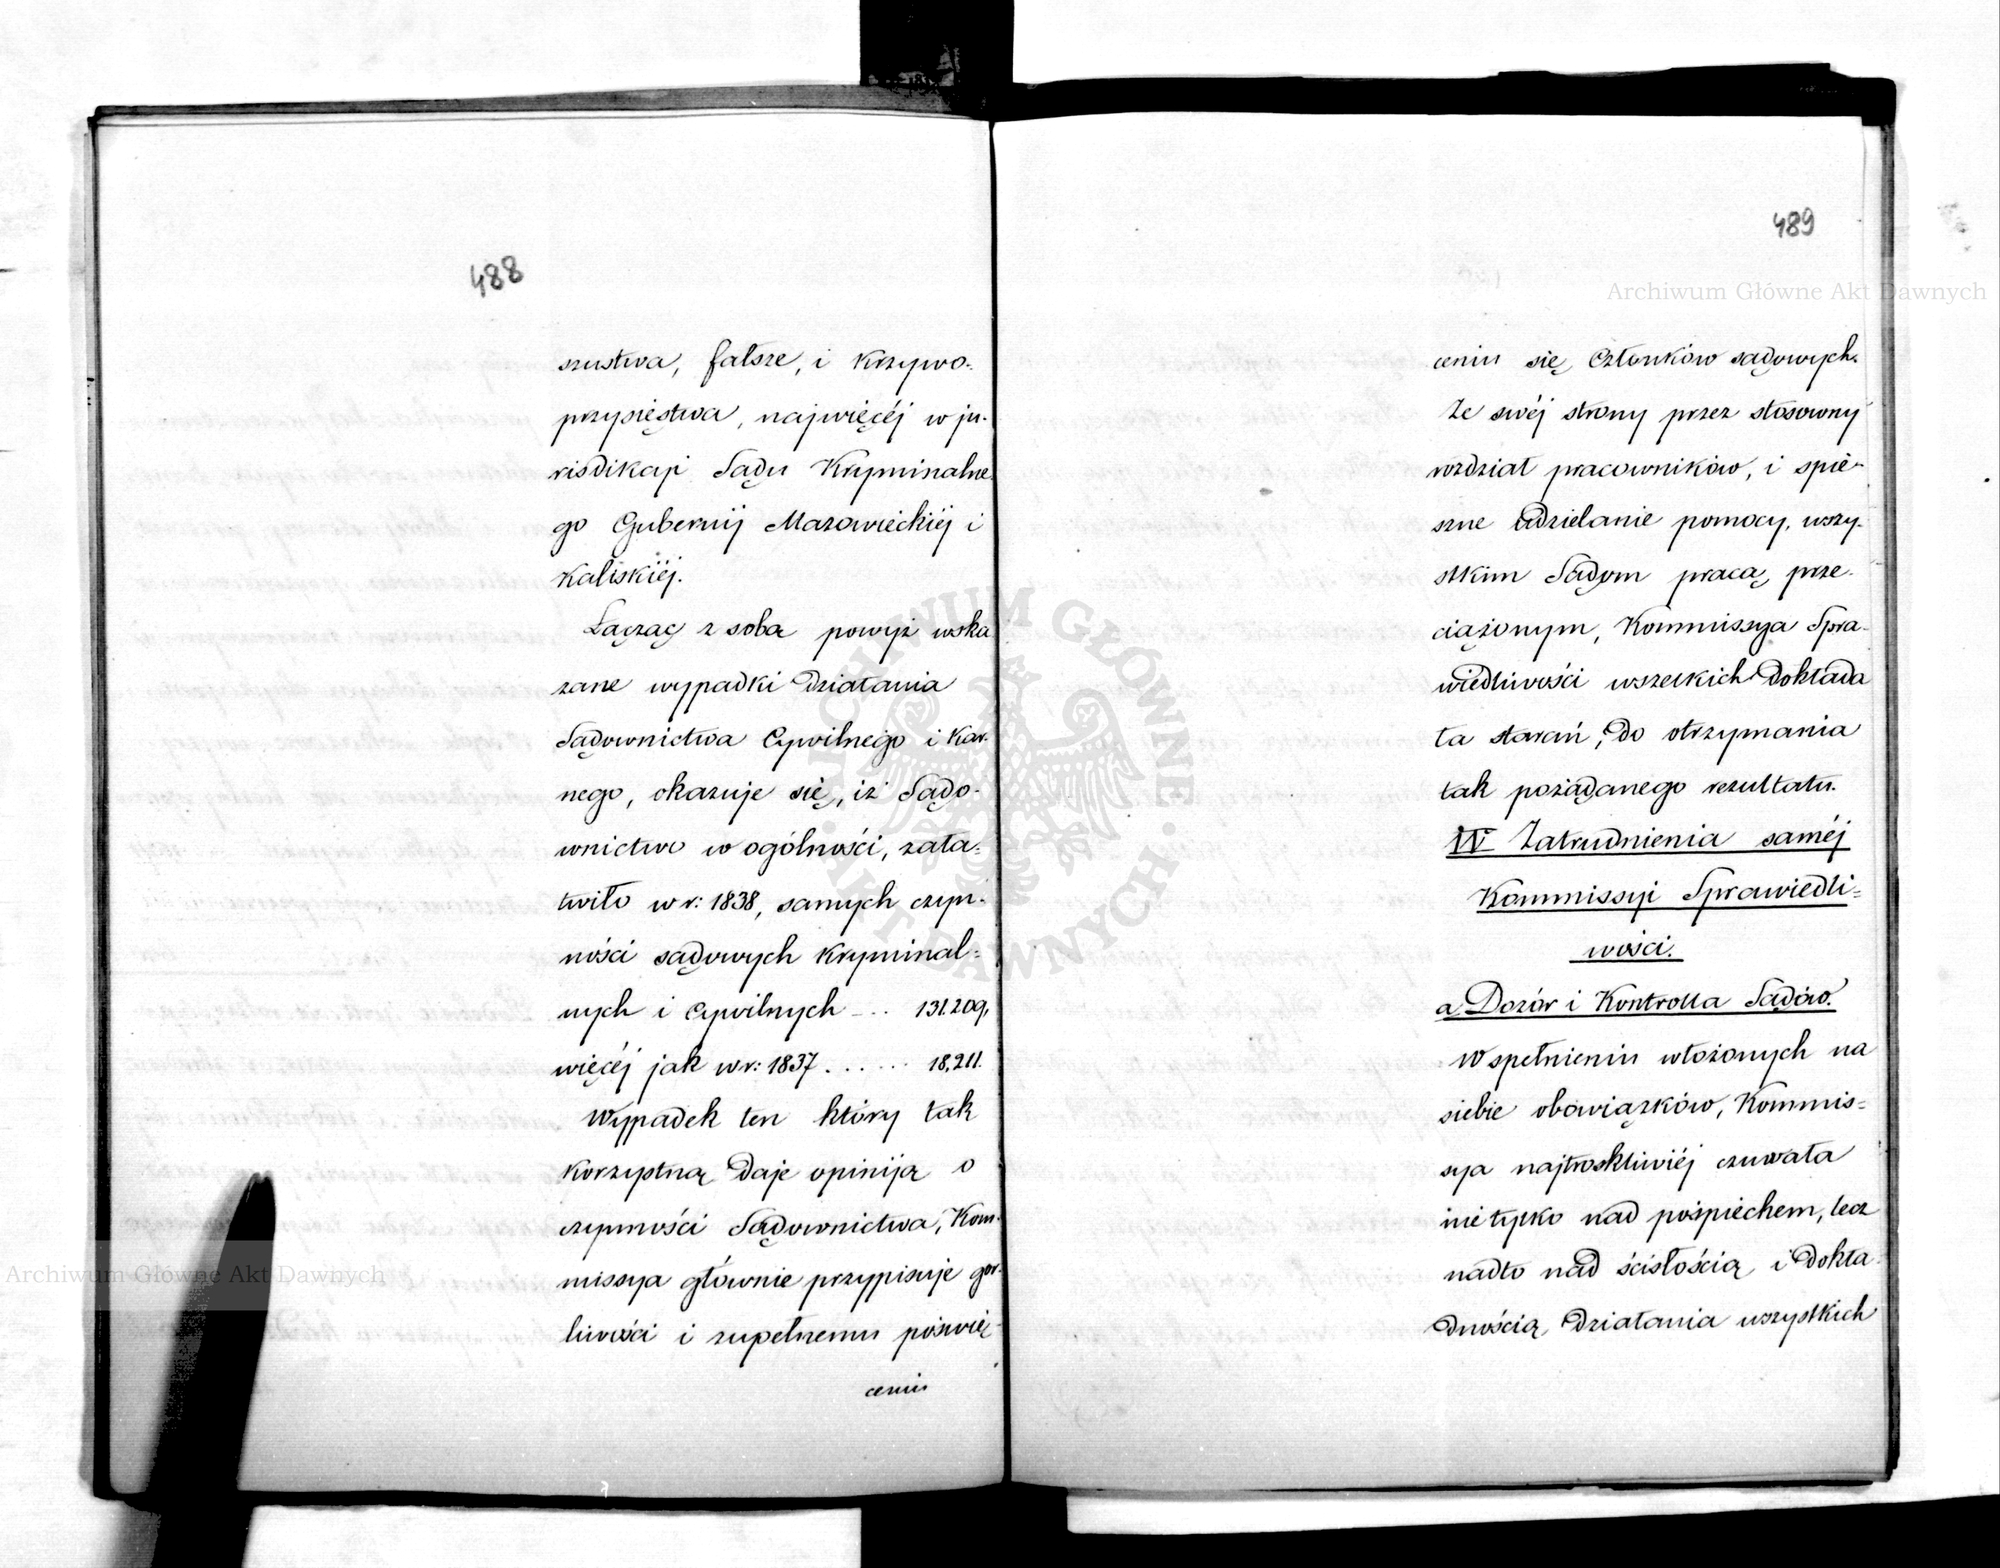 488
szustwa, fałsze, i krzywo-
przysięstwa, najwięcéj w ju-
risdikcji Sądu Kryminalne-
go Gubernij Mazowieckiéj i
Kaliskiéj.
Łącząc z sobą powyż wska
zane wypadki działania
Sądownictwa Cywilnego i kar-
nego, okazuje się, iż Sądo-
wnictwo w ogólności, zała-
twiło w r: 1838, samych czyn-
ności sądowych kryminal-
nych i cywilnych ... 131.209,
więcéj jak w r: 1837 ...... 18,211.
Wypadek ten który tak
korzystną daje opiniją o
czynności Sądownictwa, Kom-
missya głównie przypisuje gor-
liwości i zupełnemu poświę-
ceniu
489
ceniu się Członków sądowych.
Ze swéj strony przez stosowny
rozdział pracowników, i spie-
szne udzielanie pomocy, wszy-
stkim Sądom pracą prze-
ciążonym, Kommissya Spra-
wiedliwości wszelkich dokłada
ła starań, do otrzymania
tak pożądanego rezultatu.
IV Zatrudnienia saméj
Kommissyi Sprawiedli-
wości.
a Dozór i Kontrolla Sądów.
W spełnieniu włożonych na
siebie obowiązków, Kommis-
sya najtroskliwiéj czuwała
nietylko nad pośpiechem, lecz
nadto nad ścisłością i dokła-
dnością działania wszystkich
Archiwum Główne Akt Dawnych
Archiwum Główne Akt Dawnych
ARCHIWUM GŁÓWNE · AKT DAWNYCH ·